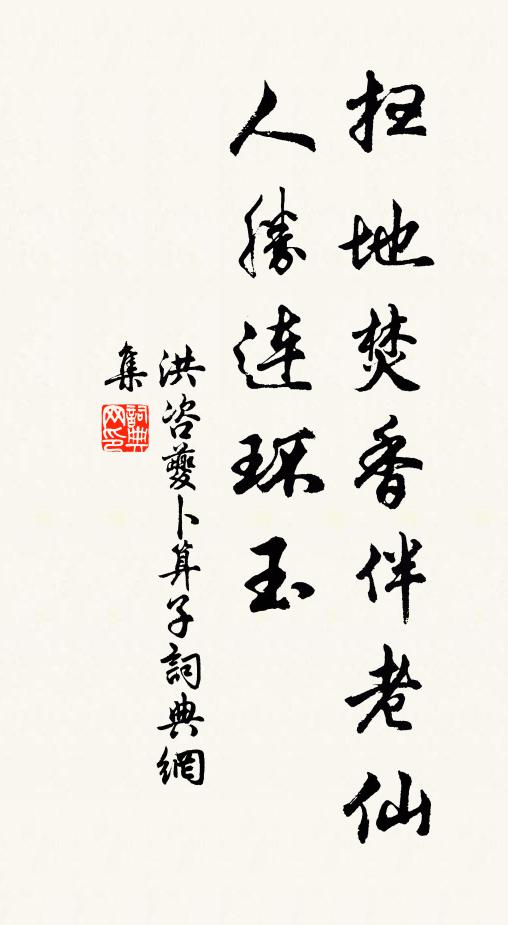 扫地焚香伴老仙
人勝連環玉
洪咨夔卜算子詞典網
集
詞典网印